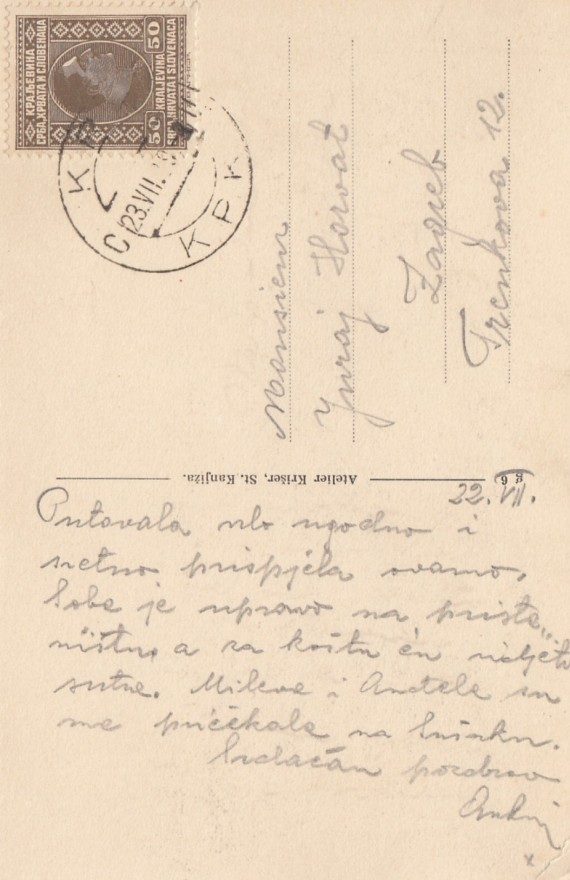 КРАЉЕВИНА
СРБА, ХРВАТА И СЛОВЕНАЦА
50 50
KRALJEVINA
SRBA, HRVATA I SLOVENACA
KRK
23.VII.
КРК
Monsieur
Juraj Horvat
Zagreb
Trenkova 12.
Atelier Krišer, St. Kanjiža.
g 6
22. VII.
Putovala vrlo ugodno i
sretno prispjela ovamo.
Soba je upravo na prista-
ništu, a za koštu ću vidjeti
sutra. Milkva i Anđela su
me pričekale na Sušaku.
Srdačan pozdrav